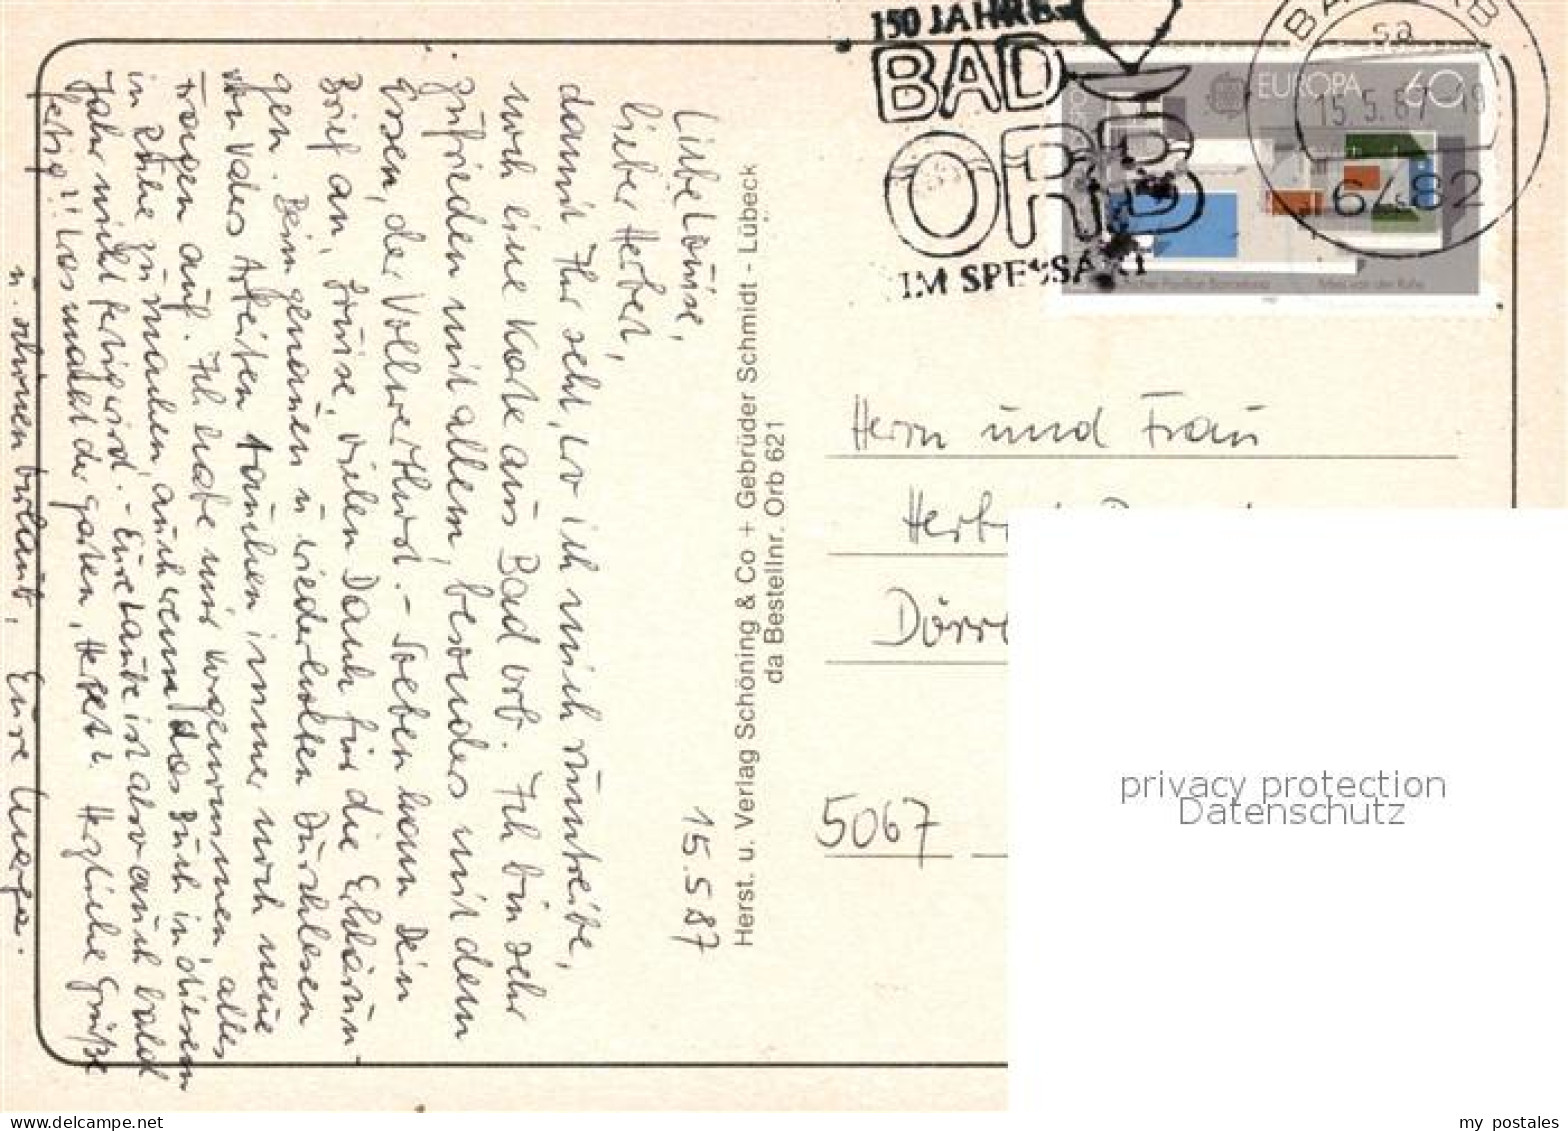 150 JAHRE
BAD
ORB
IM SPESSART
BAD ORB
sa
15.5.87-19
6482
EUROPA 60
Mies van der Rohe
15.5.87
Liebe Louise,
lieber Herbert,
damit Ihr seht, wo ich mich rumtreibe,
noch eine Karte aus Bad Orb. Ich bin sehr
zufrieden mit allem, besonders mit dem
Essen, der Vollwertkost. – Soeben kam Dein
Brief an, Louise, vielen Dank für die Erklärun-
gen. Beim genauen u. wiederholten Durchlesen
von Vaters Arbeiten tauchen immer noch neue
Fragen auf. Ich habe mir vorgenommen, alles
in Ruhe zu machen, auch wenn das Buch in diesem
Jahr nicht fertig wird. – Eure Laube ist also auch bald
fertig!! Was macht der Garten, Herbert? Herzliche Grüße
u. schönen Urlaub, Eure
Herst. u. Verlag Schöning & Co + Gebrüder Schmidt - Lübeck
da Bestellnr. Orb 621
Herrn und Frau
5067
privacy protection
Datenschutz
my postales